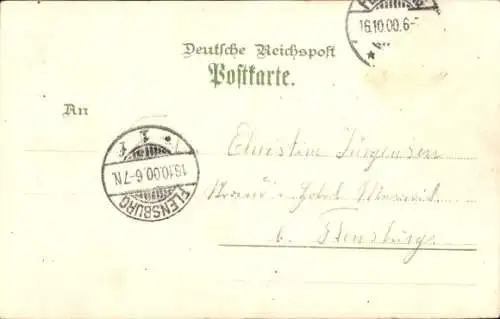 FL
16.10.00.6-
Deutsche Reichspost
Postkarte.
An
* 1 f
16.10.00.6-7N.
FLENSBURG
Christine Jürgensen
b. Flensburg.